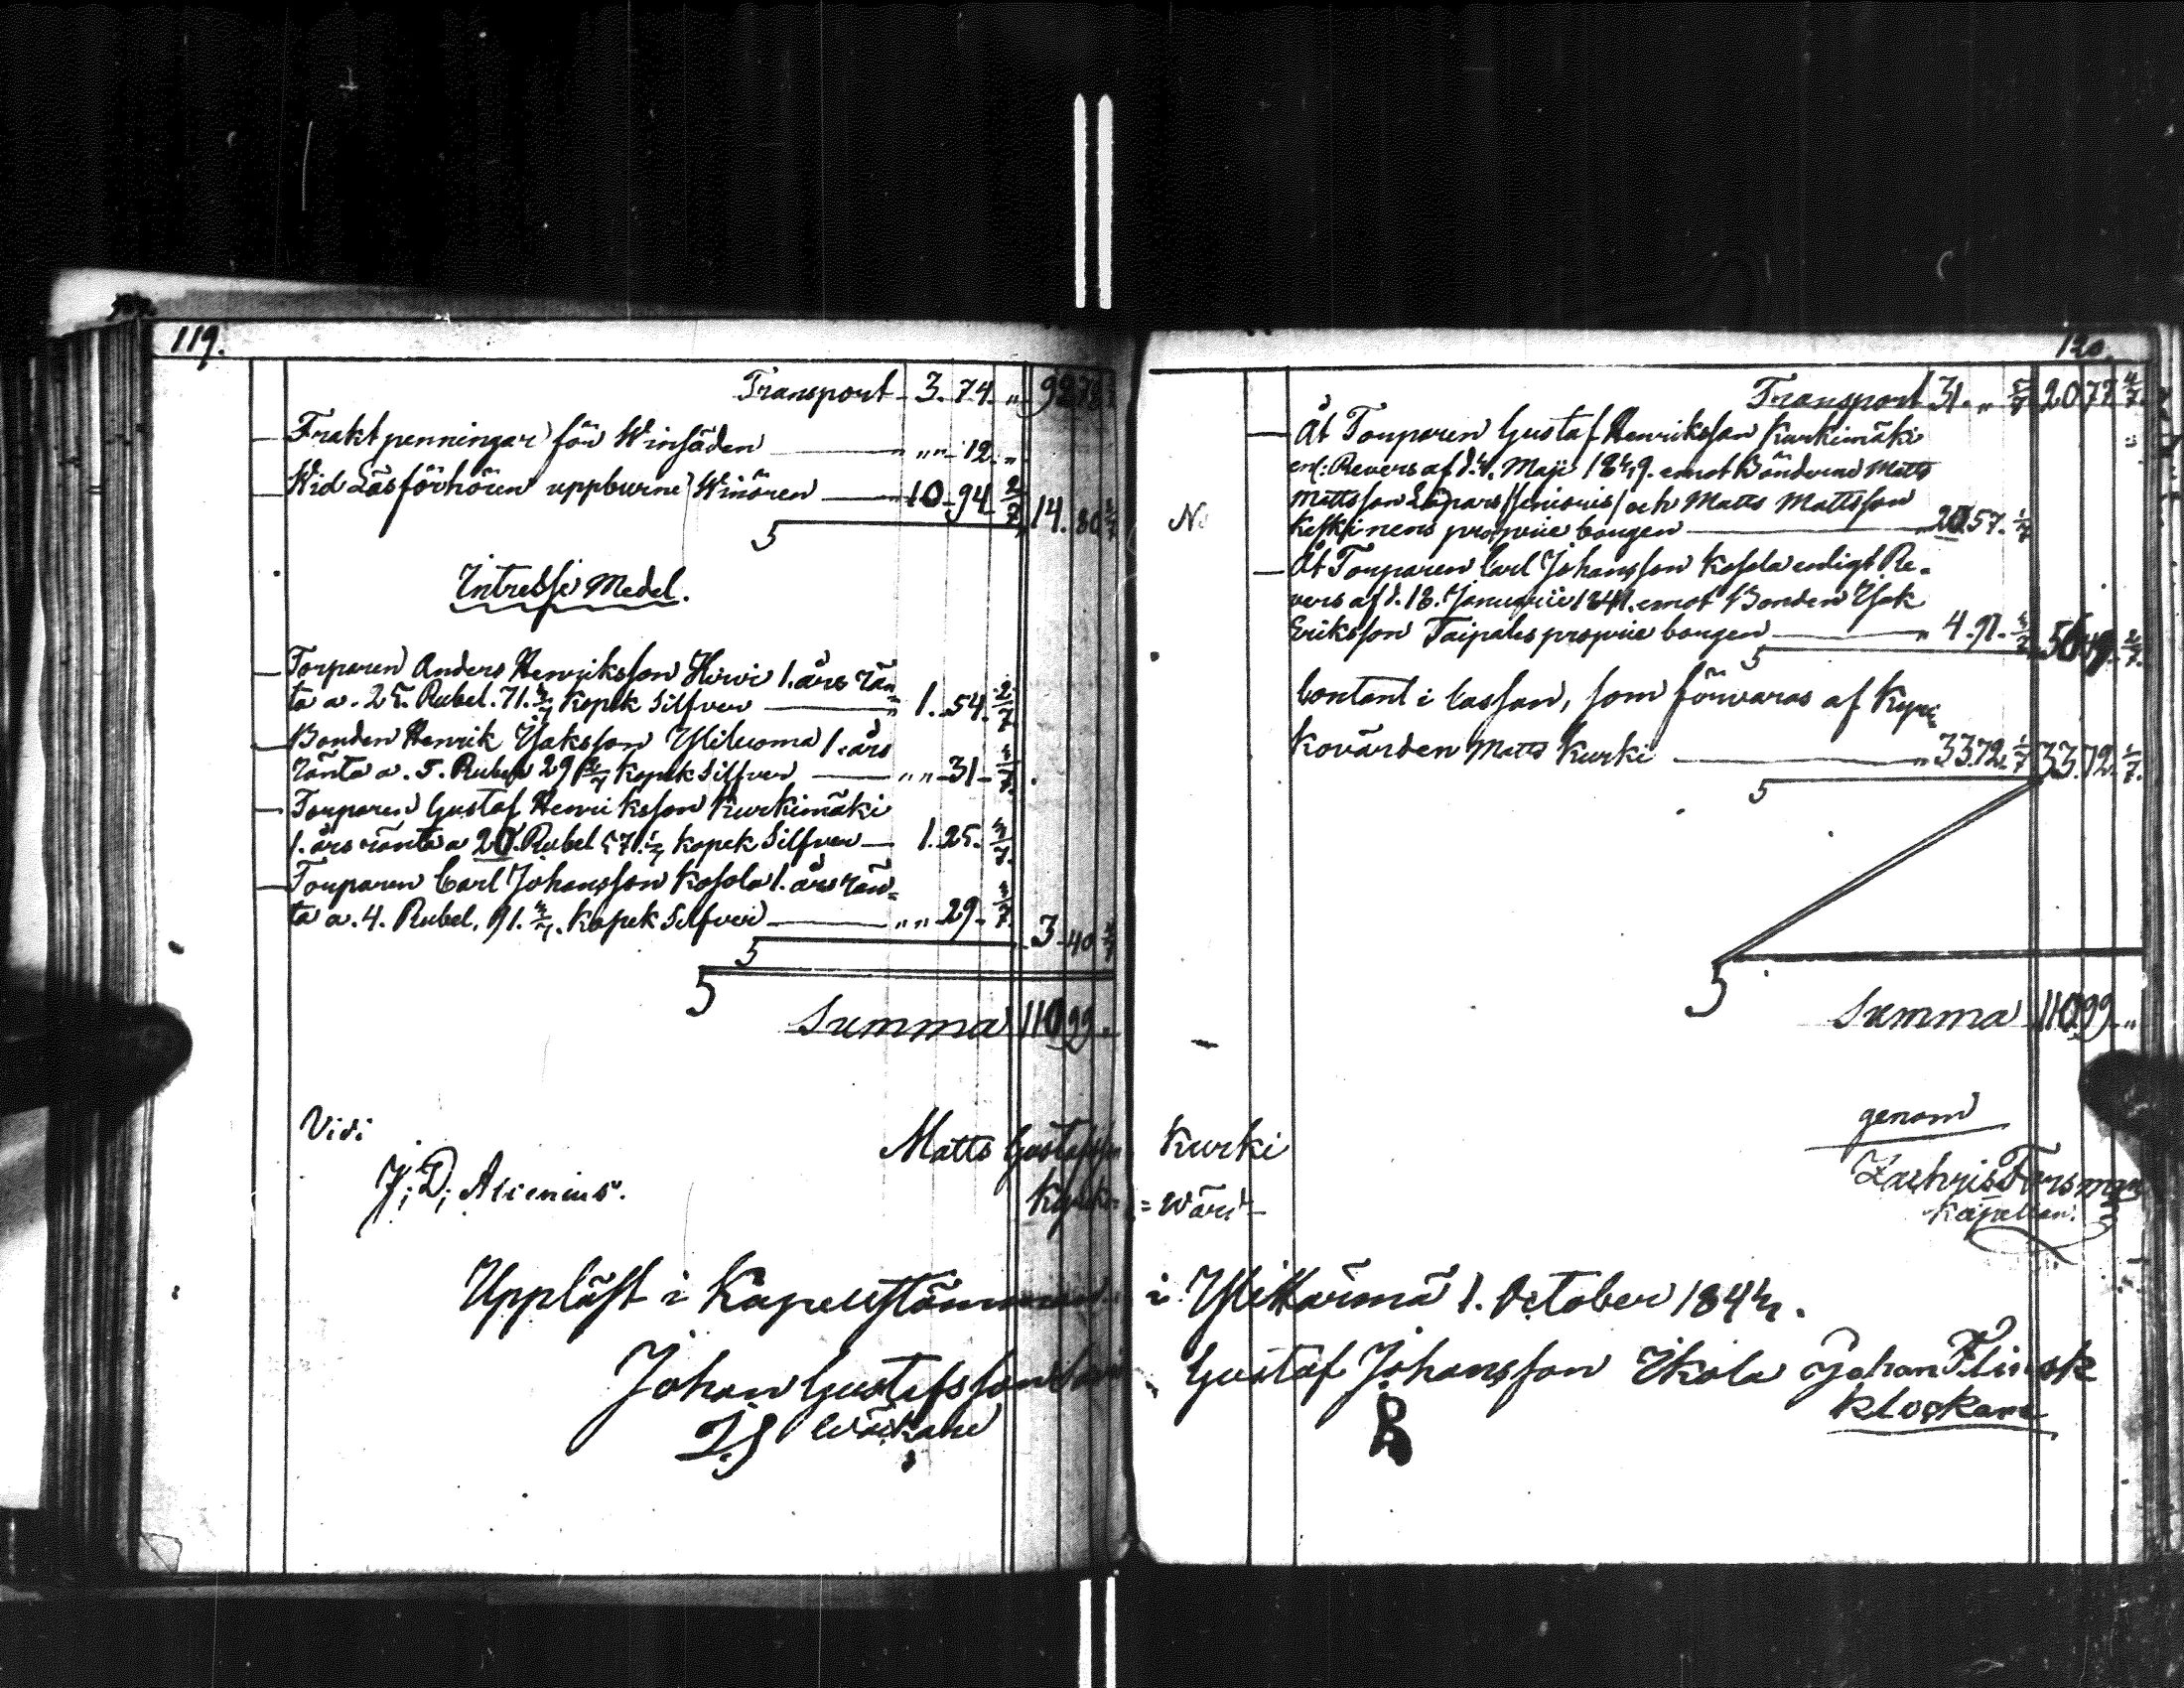 119.
Transport 3. 74. " 92 78
Fraktpenningar för Winsäden " " 12. "
Wid Läsförhören uppburne Winören 10 94 2/7 14. 80 2/7
5
Intresse Medel.
Torparen Anders Henriksson Hirvi 1. års rän=
ta a. 25. Rubel. 71. 3/7 Kopek Silfver 1. 54. 2/7
Bonden Henrik Isaksson Yliluoma 1. års
ränta a. 5. Rubel 29 Kopek Silfver " " 31
Torparen Gustaf Henriksson Kurkimäki
1. års ränta a 20. Rubel 57. 1/7 Kopek Silfver 1. 25.
Torparen Carl Johansson Kosola 1. års rän=
ta a. 4. Rubel. 91. 3/7. Kopek Silfver " " 29 3 40
5
5
Summa 110 99 "
Vidi
J; D; Alcenius.
Matts Gustafsson
Kyrko=
Uppläst i Kapellstämman
Johan Gustafsson
120.
Transport 31. " 5/7 20 77 4/7
Åt Torparen Gustaf Henriksson Kurkimäki
enl: Revers af d. 4. Maji 1849. emot Bönderne Matts
Mattsson Löpars /senioris/ och Matts Mattsson
Keskinens proprie borgen 20. 57. 1/7
Åt Torparen Carl Johansson Kosola enligt Re=
vers af d. 18. Januarii 1841. emot Bonden Isak
Eriksson Taipales proprie borgen " 4. 91. 3/7 56 49 2/7
5
Contant i Cassan, som förvaras af Kyr=
kovärden Matts Kurki " 33 72. 1/7 33. 72. 1/7
5
5
Summa 110 99 "
genom
Zachris Forsman
Kapellan.
Kurki
= wärd
i Ylikärmä 1. October 1844.
Gustaf Johansson Ikola Johan Flinck
Klockare